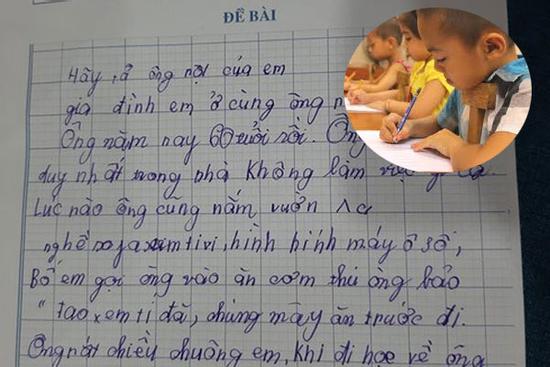 ĐỀ BÀI
Hãy tả ông nội của em
gia đình em ở cùng ông
Ông năm nay 60 tuổi rồi. Ông
duy nhất trong nhà không làm việc
Lúc nào ông cũng nằm vườn
nghế xem tivi, hình hính máy ô số,
Bố em gọi ông vào ăn cơm thì ông bảo
"tao xem ti đã, chúng mày ăn trước đi.
Ông rất chiều chuông em, khi đi học về ông